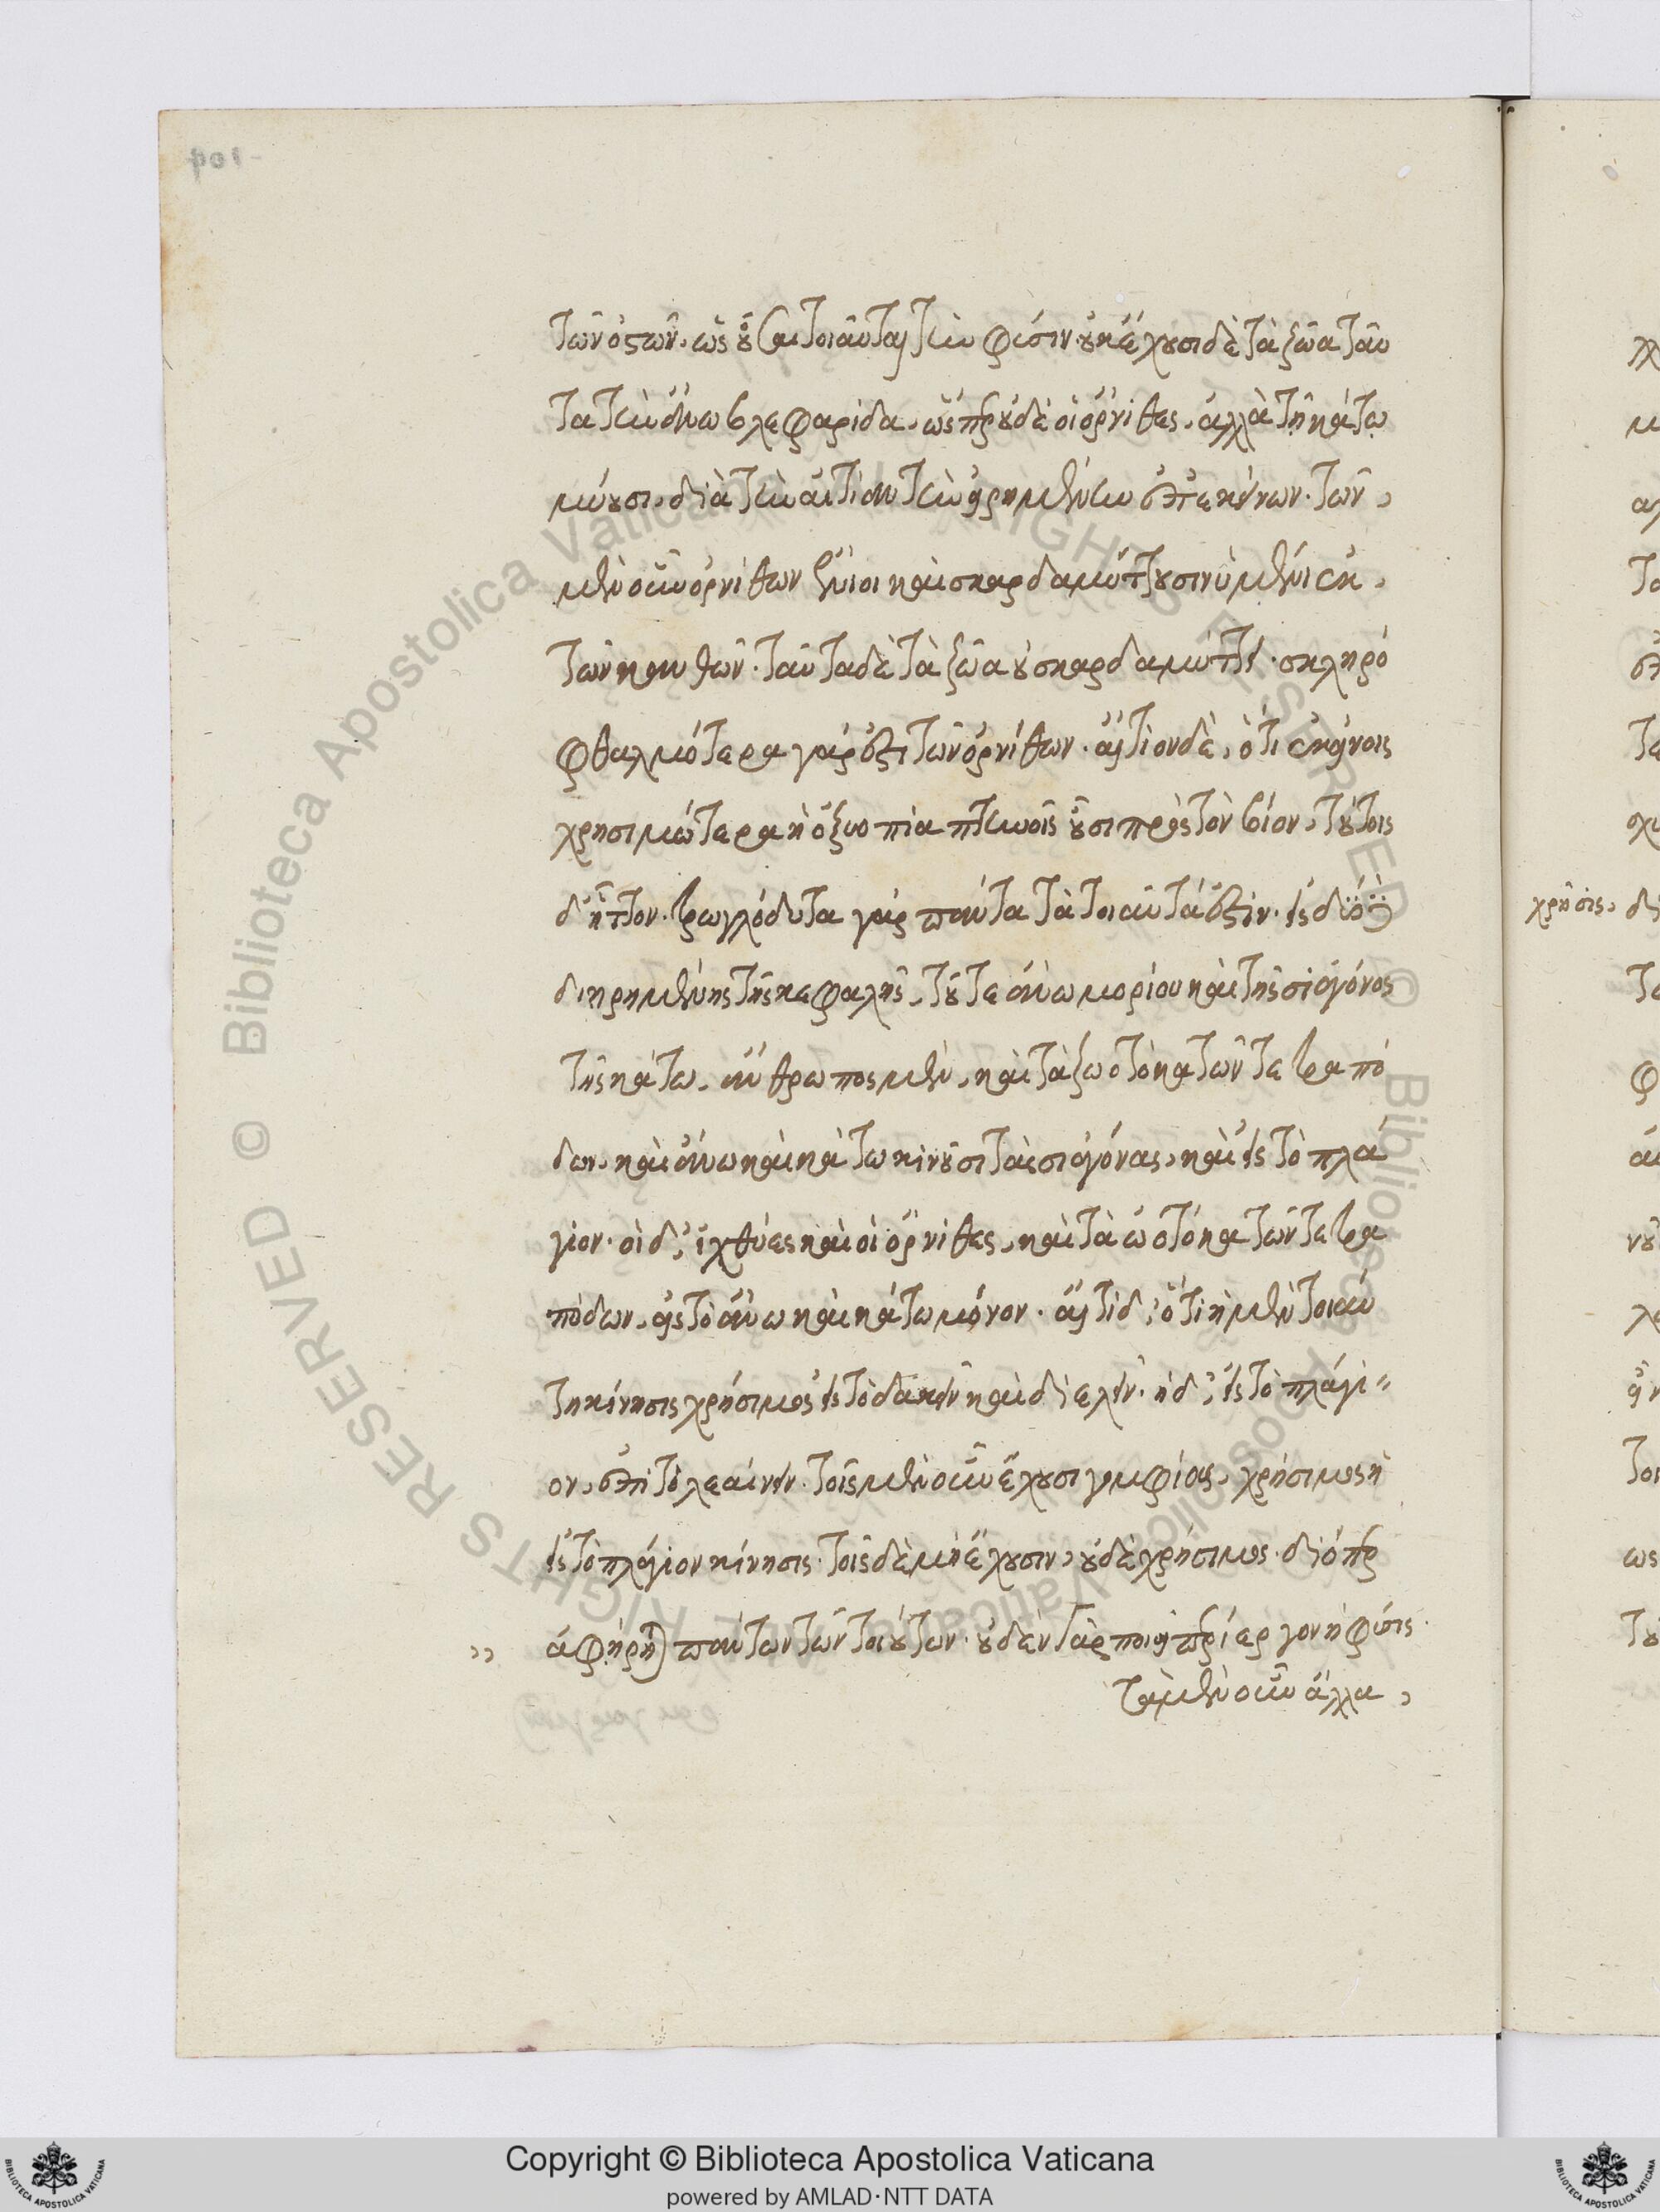 τῶν ὀστῶν. ὡς οὖσαι τοιαῦται τὴν φύσιν. οὐκ ἔχουσι δὲ τὰ ζῶα ταῦ
τα τὴν ἄνω βλεφαρίδα. ὥσπερ οὐδὲ οἱ ὄρνιθες. ἀλλὰ τῇ κάτω
μύουσι. διὰ τὴν αἰτίαν τὴν εἰρημένην ἐπ' ἐκείνων. τῶν
μὲν οὖν ὀρνίθων ἔνιοι καὶ σκαρδαμύττουσιν ὑμένι ἐκ
τῶν κανθῶν. ταῦτα δὲ τὰ ζῶα οὐ σκαρδαμύττει. σκληρό
φθαλμότερα γάρ ἐστι τῶν ὀρνίθων. αἴτιον δὲ, ὅτι ἐκείνοις
χρησιμώτερα ἡ ὀξυοπία πτηνοῖς οὖσι πρὸς τὸν βίον. τούτοις
δ' ἧττον. τρωγλόδυτα γὰρ πάντα τὰ τοιαῦτά ἐστιν. εἰς δύο
διῃρημένης τῆς κεφαλῆς, τοῦ τε ἄνω μορίου καὶ τῆς σιαγόνος
τῆς κάτω. ἄνθρωπος μὲν, καὶ τὰ ζωοτόκα τῶν τετραπό
δων, καὶ ἄνω καὶ κάτω κινοῦσι τὰς σιαγόνας, καὶ εἰς τὸ πλά
γιον. οἱ δ' ἰχθύες καὶ οἱ ὄρνιθες, καὶ τὰ ὠοτόκα τῶν τετρα
πόδων, εἰς τὸ ἄνω καὶ κάτω μόνον. αἴτιον δ' ὅτι ἡ μὲν τοιαύ
τη κίνησις χρήσιμος εἰς τὸ δακεῖν καὶ διελεῖν. ἡ δ' εἰς τὸ πλάγι-
ον, ἐπὶ τὸ λεαίνειν. τοῖς μὲν οὖν ἔχουσι γομφίους, χρήσιμος ἡ
εἰς τὸ πλάγιον κίνησις. τοῖς δὲ μὴ ἔχουσιν, οὐδὲ χρήσιμος. διόπερ
ἀφῄρηται πάντων τῶν τοιούτων. οὐδὲν γὰρ ποιεῖ περίεργον ἡ φύσις.
τὰ μὲν οὖν ἄλλα
χρῆσις.
Copyright © Biblioteca Apostolica Vaticana
powered by AMLAD·NTT DATA